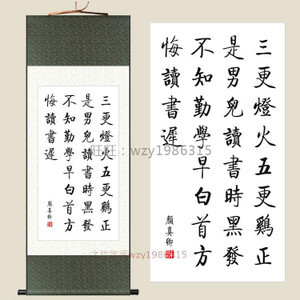 三更燈火五更鷄正
是男兒讀書時黑發
不知勤學早白首方
悔讀書遲
顏真卿
三更燈火五更鷄正
是男兒讀書時黑發
不知勤學早白首方
悔讀書遲
顏真卿
旺旺：wzy1986315
wzy1986315